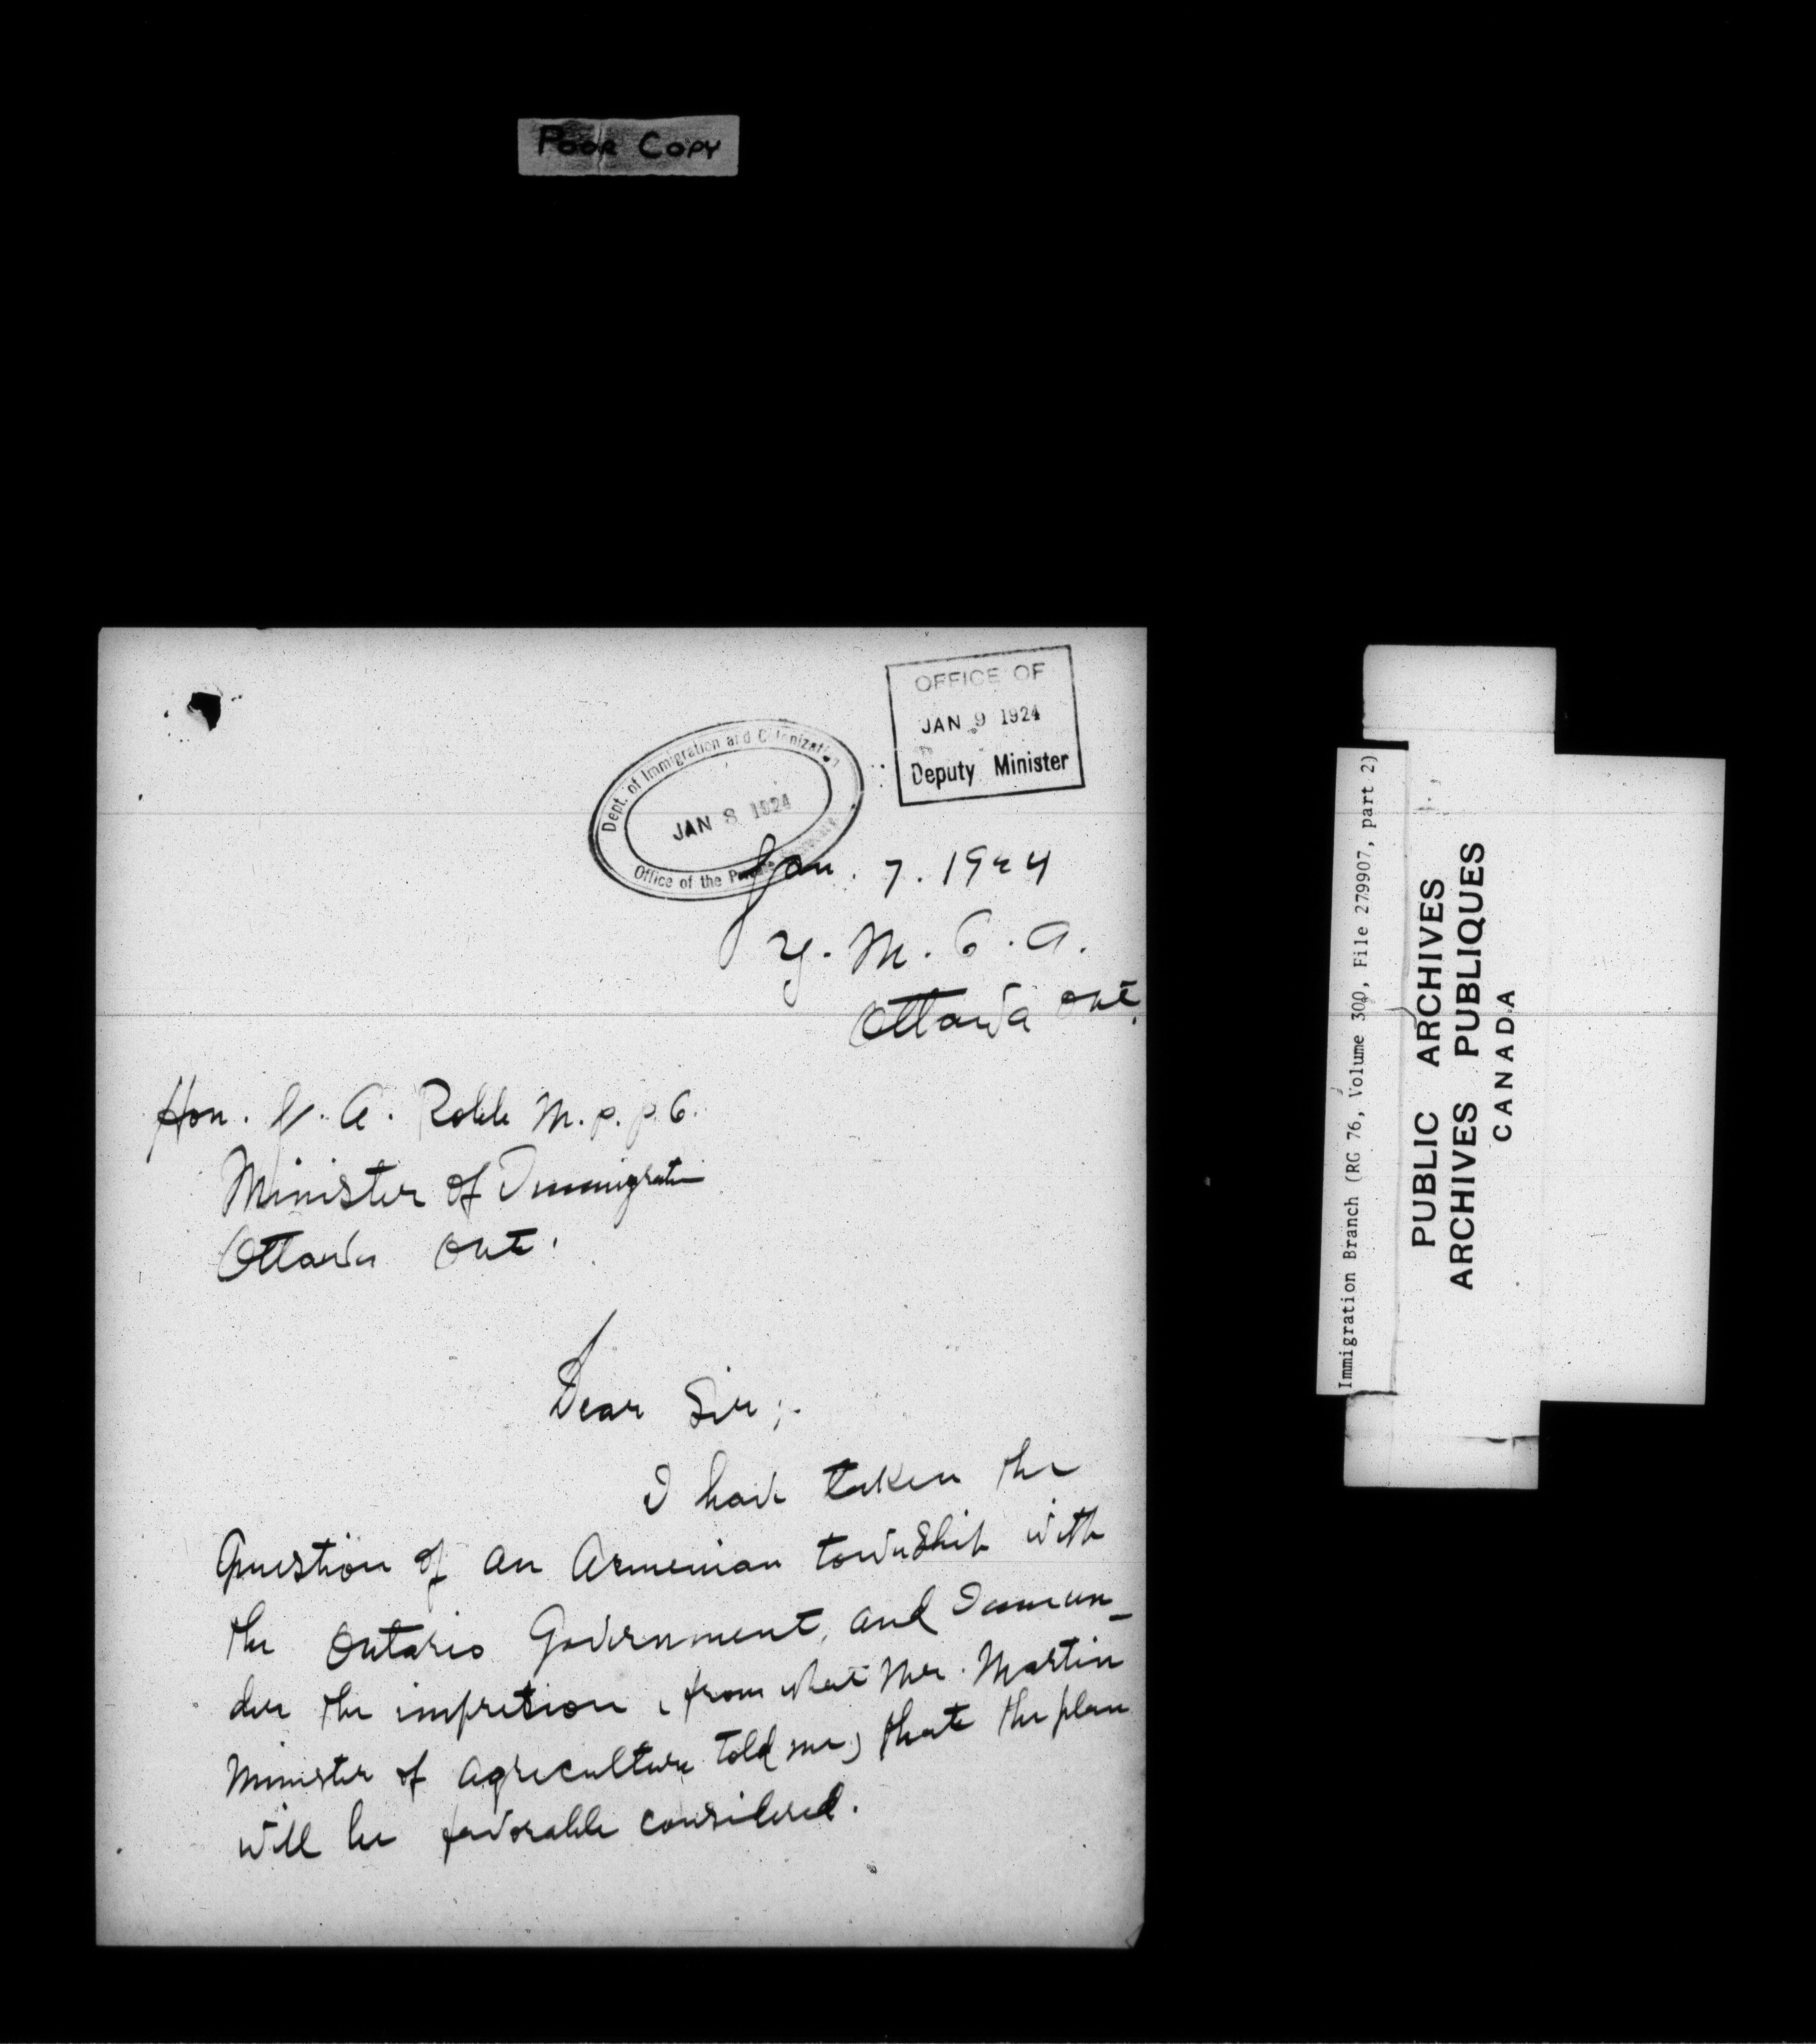 Poor Copy
OFFICE OF
JAN 9 1924
Deputy Minister
Dept. of Immigration and Colonization
JAN 8 1924
Office of the Private
Jan. 7. 1924
Y. M. C. A.
Ottawa Ont.
Hon. A. Robb M. P. P. C.
Minister of Immigration
Ottawa Ont.
Dear Sir;.
I have taken the
Question of an Armenian township with
the Ontario Government, and I am un-
der the impretion, from what Mr. Martin
Minister of Agriculture told me, that the plan
will be favorable considered.
Immigration Branch (RG 76, Volume 300, File 279907, part 2)
PUBLIC ARCHIVES
ARCHIVES PUBLIQUES
CANADA